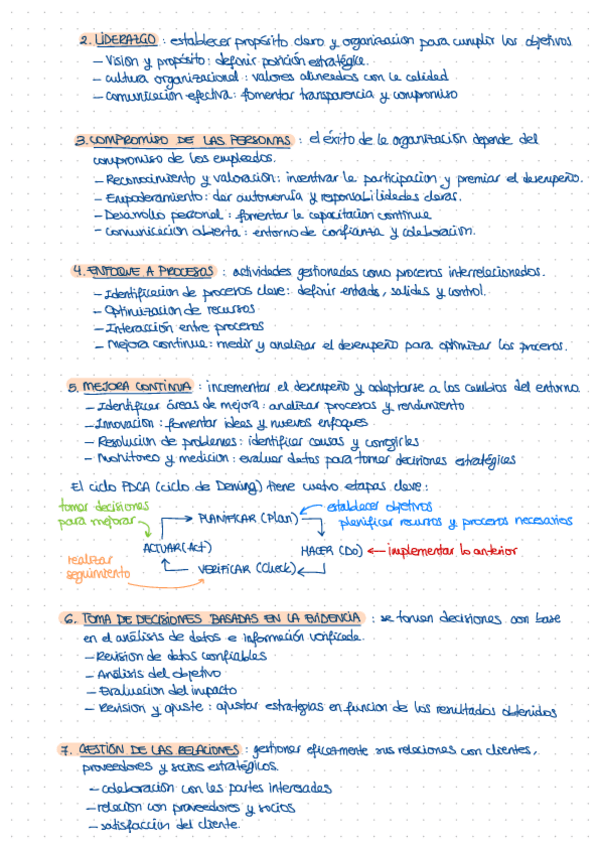 2. LIDERAZGO : establecer propósito claro y organizacion para cumplir los objetivos
– Visión y propósito: definir posición estratégica.
– cultura organizacional : valores alineados con la calidad
– comunicación efectiva : fomentar transparencia y compromiso
3. COMPROMISO DE LAS PERSONAS : el éxito de la organización depende del
compromiso de los empleados.
– Reconocimiento y valoración: incentivar la participacion y premiar el desempeño.
– Empoderamiento: dar autonomía y responsabilidades claras.
– Desarrollo personal : fomentar la capacitacion continua
– comunicación abierta : entorno de confianza y colaboración.
4. ENFOQUE A PROCESOS : actividades gestionadas como procesos interrelacionados.
– Identificacion de procesos clave: definir entrada, salidas y control.
– Optimizacion de recursos
– Interacción entre procesos
– Mejora continua: medir y analizar el desempeño para optimizar los procesos.
5. MEJORA CONTINUA : incrementar el desempeño y adaptarse a los cambios del entorno
– Identificar áreas de mejora : analizar procesos y rendimiento
– Innovacion : fomentar ideas y nuevos enfoques
– Resolucion de problemas: identificar causas y corregirlas
– Monitoreo y medicion : evaluar datos para tomar decisiones estratégicas
El ciclo PDCA (ciclo de Deming) tiene cuatro etapas clave :
tomar decisiones
para mejorar
PLANIFICAR (Plan)
establecer objetivos
planificar recursos y procesos necesarios
ACTUAR (Act)
HACER (Do)
implementar lo anterior
realizar
seguimiento
VERIFICAR (Check)
6. TOMA DE DECISIONES BASADAS EN LA EVIDENCIA : se toman decisiones con base
en el análisis de datos e información verificada.
– Revision de datos confiables
– Análisis del objetivo
– Evaluacion del impacto
– Revision y ajuste : ajustar estrategias en funcion de los resultados obtenidos
7. GESTIÓN DE LAS RELACIONES : gestionar eficazmente sus relaciones con clientes,
proveedores y socios estratégicos.
– colaboración con las partes interesadas
– relacion con proveedores y socios
– satisfaccion del cliente.